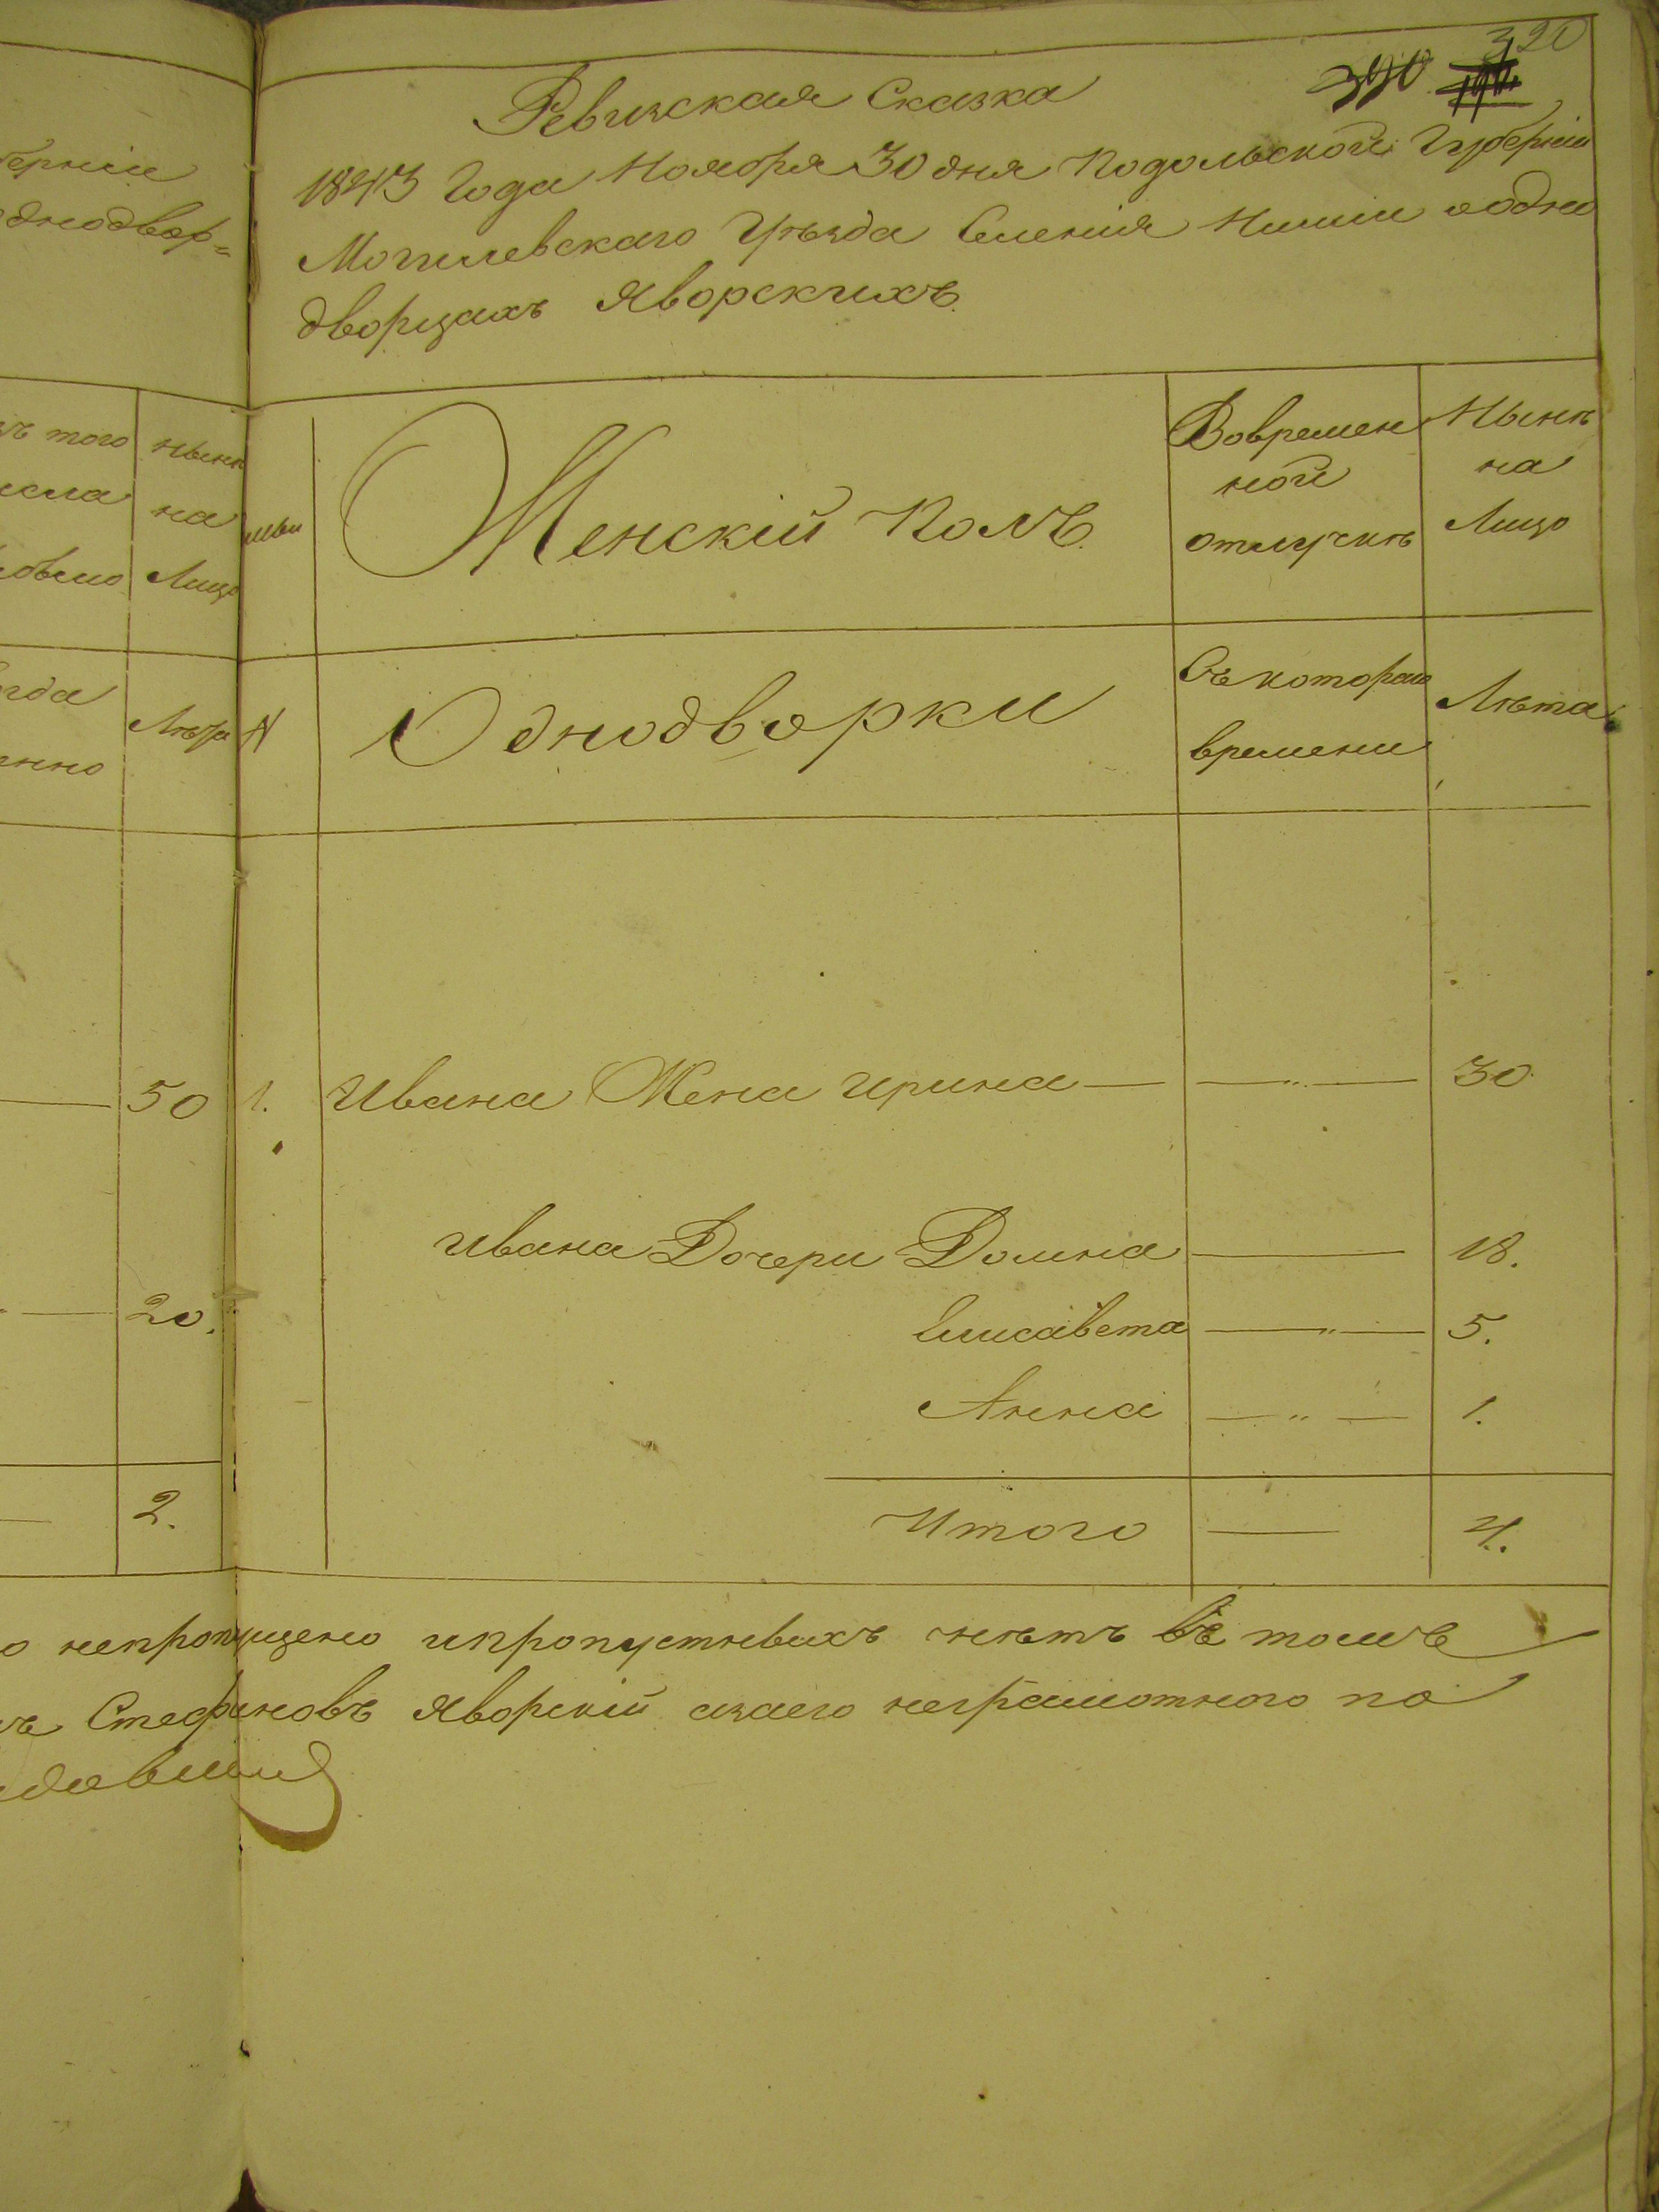 320
390
Ревизская Сказка
1843 Года Ноября 30 дня Подольской Губерніи
Могилевскаго Уѣзда Селенія Нишии ободно
дворцахъ Яворскихъ
берніи
днодвор=
того
Нынѣ
на
Лицо
Женскій Полъ.
Вовремен
ной
отлучкѣ
Нынѣ
на
Лицо
Лѣта
N
Однодворки
Съ котораго
времени
Лѣта
50
1.
Ивана Жена Ирина — — „ — 30
Ивана Дочери Домна — 18.
20.
Елисавета — „ — 5.
Анна — „ — 1.
2.
Итого — 4.
о непропущено ипропустневыхъ нѣтъ въ томъ
Стефановъ Яворскій азаего неграмотного по